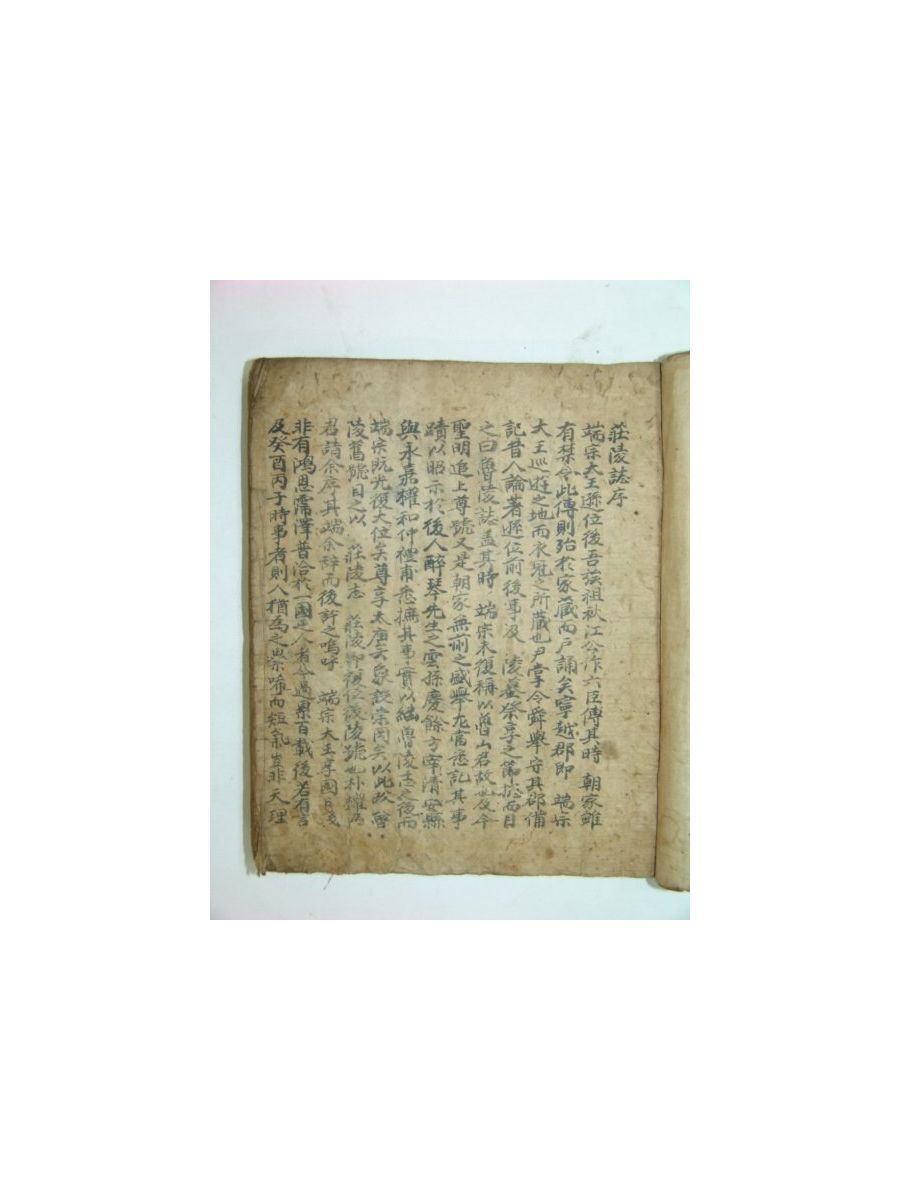 莊陵誌序
端宗大王遜位後吾族祖秋江公作六臣傳其時 朝家雖
有禁令此傳則殆於家藏而戶誦矣寧越郡即 端宗
大王巡遊之地而衣冠之所藏也尹掌令舜擧守其郡備
記昔人論著遜位前後事及 陵墓祭享之節摠而目
之曰魯陵誌盖其時 端宗未復稱以魯山君故也及今
聖明追上尊號又是朝家無前之盛擧尤當悉記其事
蹟以昭示於後人醉琴先生之雲孫慶餘方宰淸安縣
與永嘉權和仲禮甫悉摭其事實以繼魯陵志之後而
端宗旣光復大位矣尊享太廟矣象設崇閎矣以此改
陵舊號目之以 莊陵志 莊陵即復位後陵號也朴權
君請余序其端余辭而後許之嗚呼 端宗大王享國日淺
非有鴻恩霈澤普洽於一國之人者今過累百載後若有言
及癸酉丙子時事者則人猶爲之累唏而短氣豈非天理